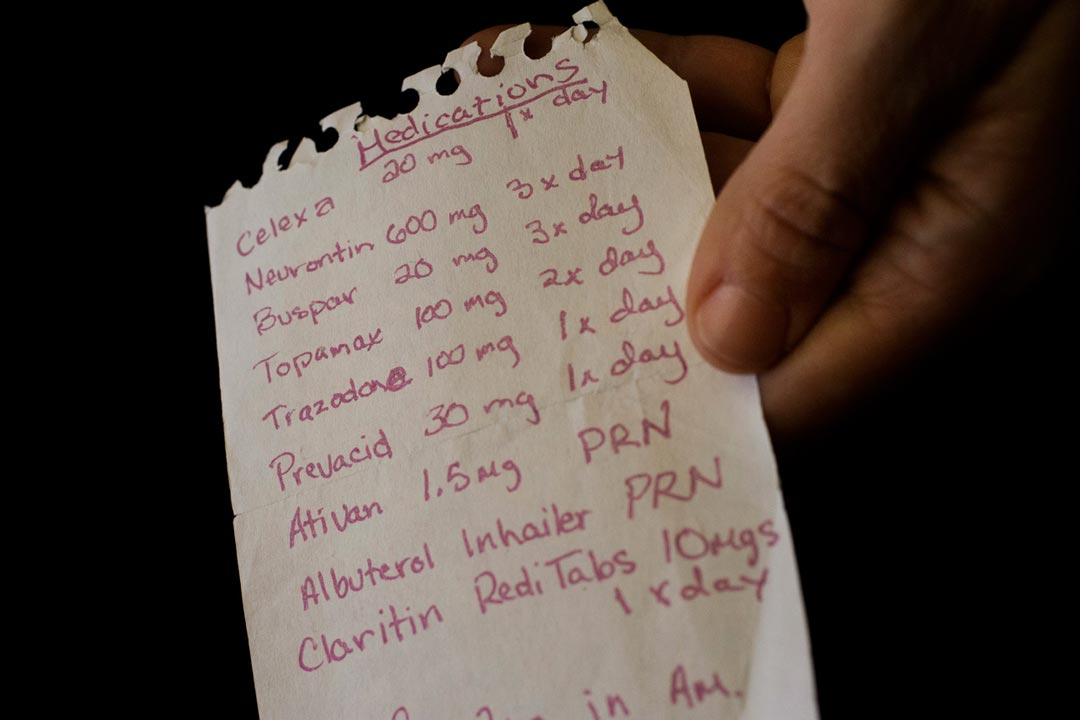 Medications
Celexa 20 mg 1x day
Neurontin 600 mg 3x day
Buspar 20 mg 3x day
Topamax 100 mg 2x day
Trazodone 100 mg 1x day
Prevacid 30 mg 1x day
Ativan 1.5mg PRN
Albuterol Inhailer PRN
Claritin RediTabs 10mgs
1 x day
in Am.